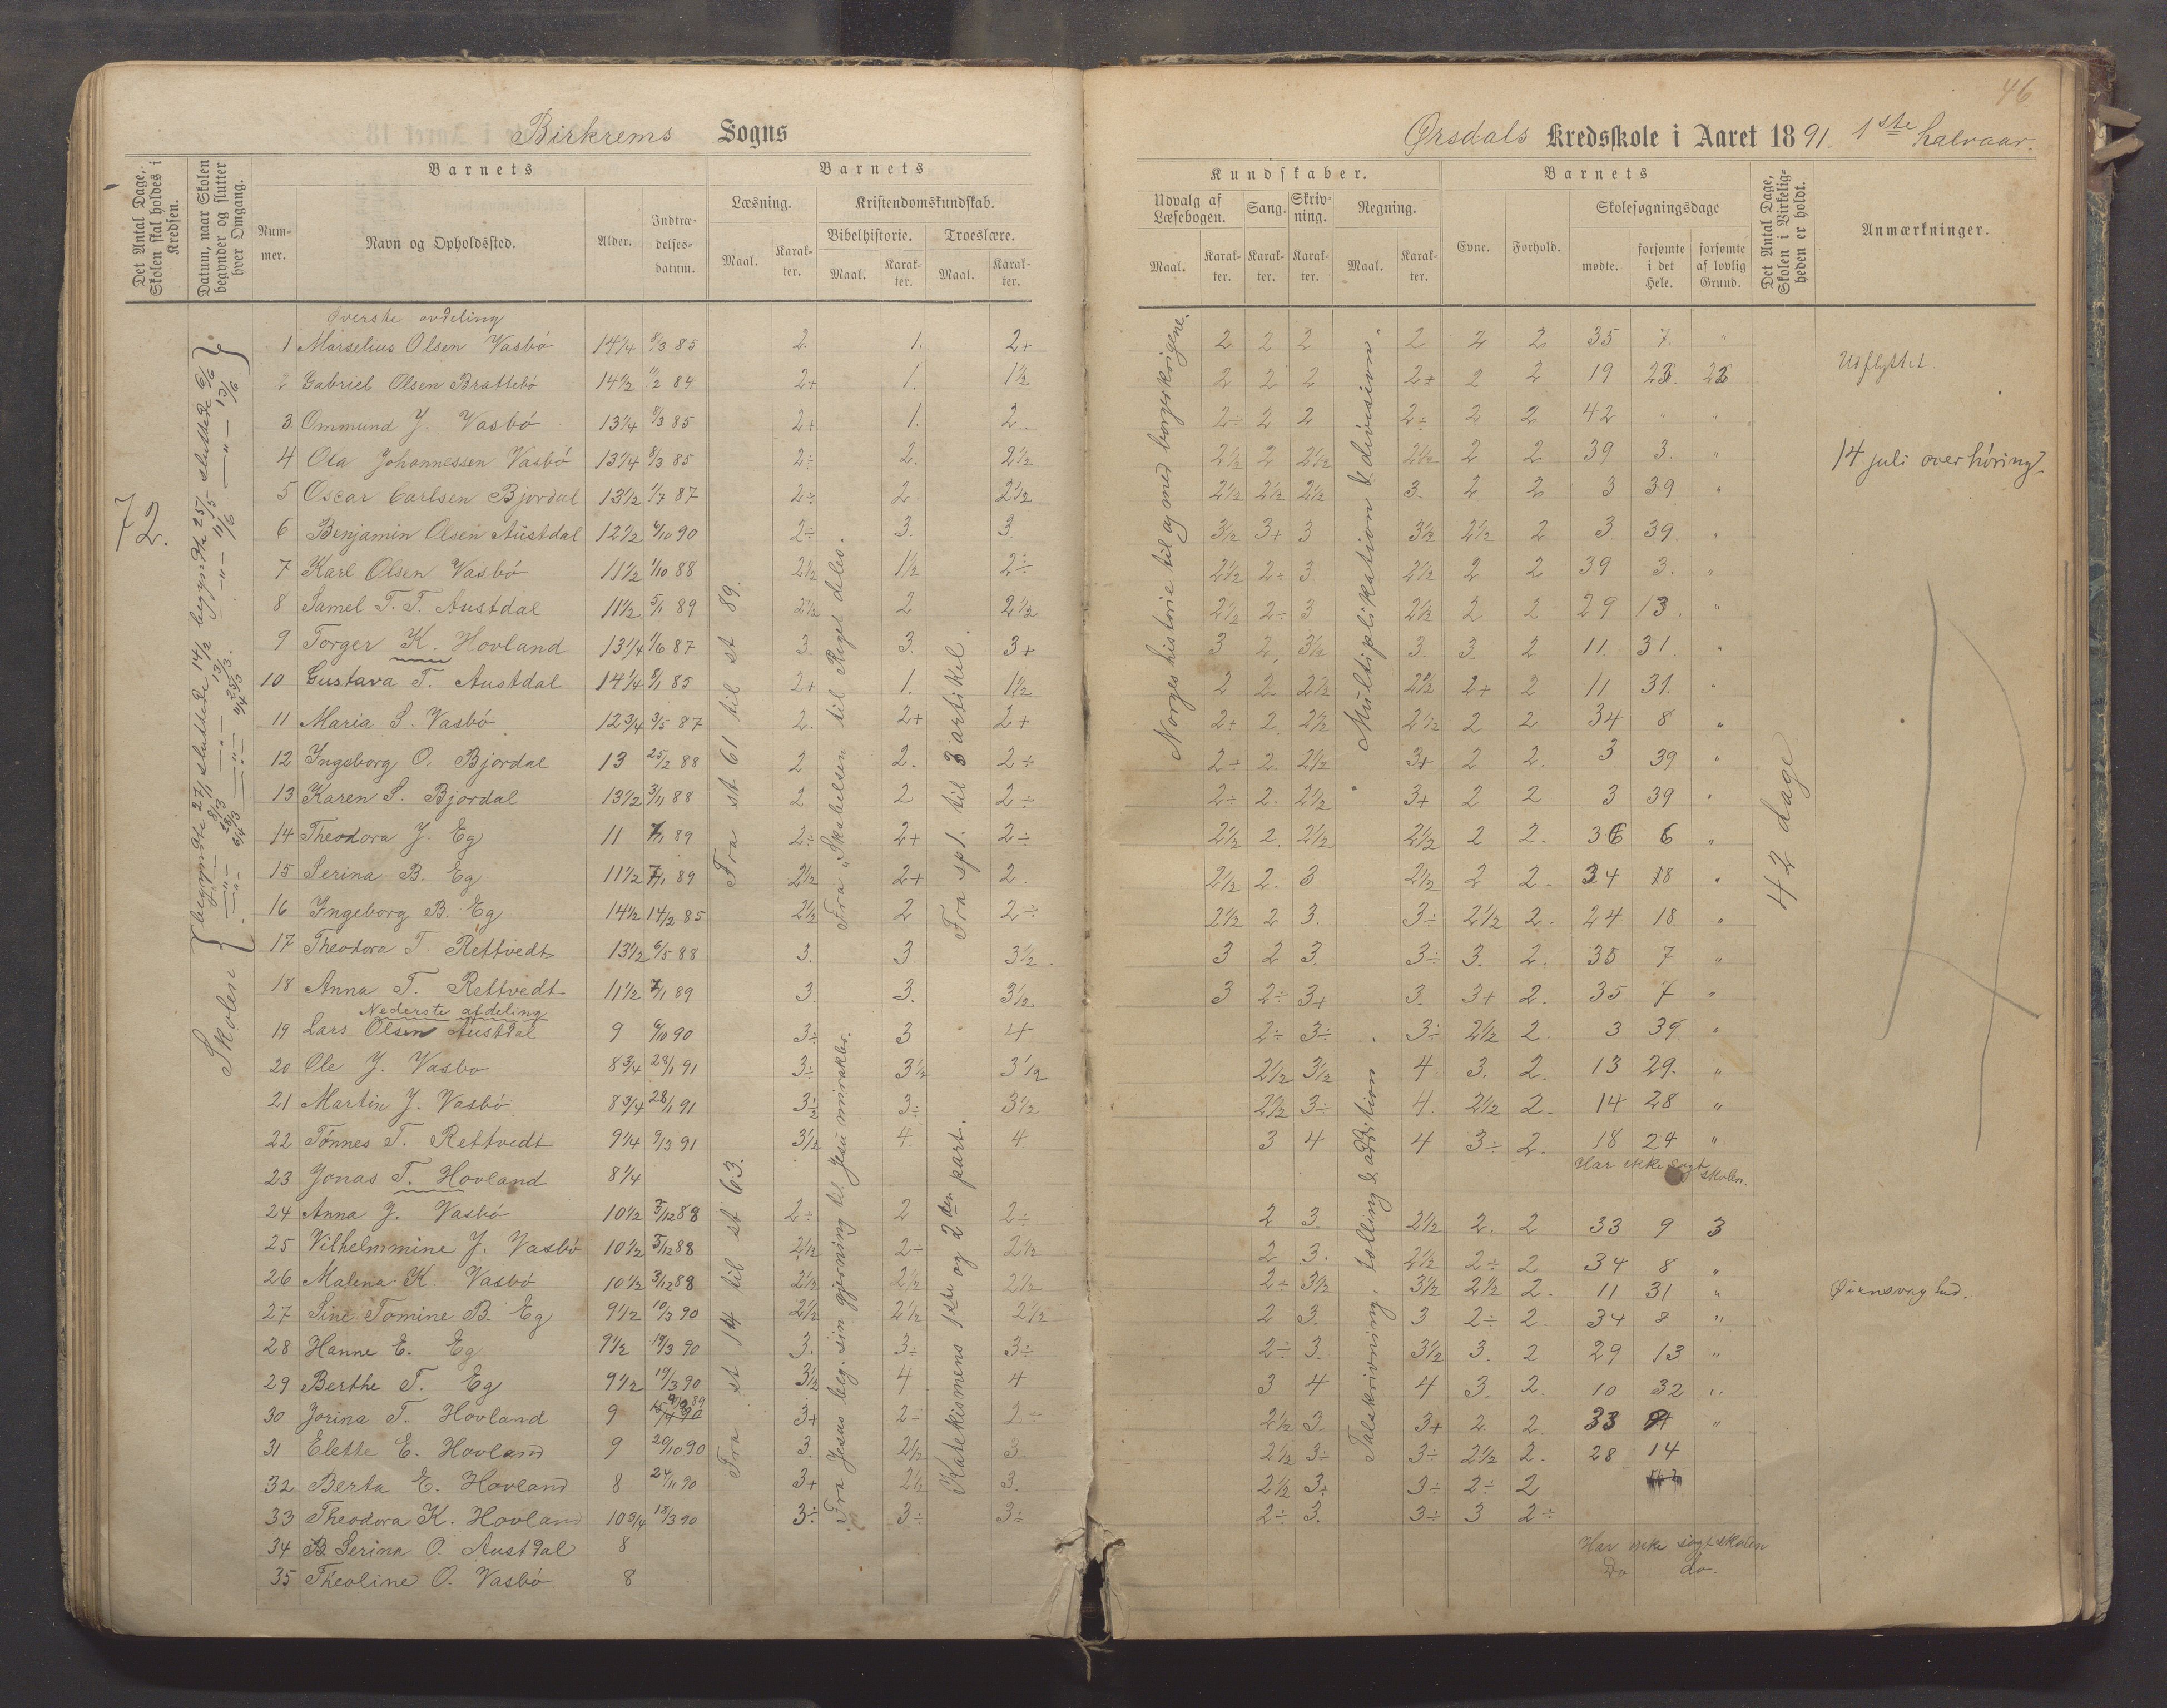 46
Birkrems Sogns
Ørsdals Kredsskole i Aaret 1891. 1ste halvaar.
Det Antal Dage, Skolen skal holdes i Kredsen.
Datum, naar Skolen begynder og slutter hver Omgang.
Barnets
Nummer.
Navn og Opholdssted.
Alder.
Indtrædelsesdatum.
Barnets
Læsning.
Maal.
Karakter.
Kristendomskundskab.
Bibelhistorie.
Maal.
Karakter.
Troeslære.
Maal.
Karakter.
Kundskaber.
Udvalg af Læsebogen.
Maal.
Karakter.
Sang.
Karakter.
Skrivning.
Karakter.
Regning.
Maal.
Karakter.
Barnets
Evne.
Forhold.
Skolesøgningsdage
mødte.
forsømte i det Hele.
forsømte af lovlig Grund.
Det Antal Dage, Skolen i Virkeligheden er holdt.
Anmærkninger.
72.
Skolen
Fra st 61 til st 89.
Fra "Skabelsen til Riget deles.
Fra sp 1. til 3 artikel.
Norges historie til og med borgerkrigene.
Multiplikation & division.
42 dage
Øverste avdeling
1 Marselius Olsen Vasbö 14 1/4 8/3 85 2. 1. 2+ 2 2 2 2 2 2 35 7. "
2 Gabriel Olsen Brattebö 14 1/2 11/2 84 2+ 1. 1 1/2 2 2 2 2+ 2 2 19 23. 23 Udflyttet.
3 Ommund J. Vasbö 13 1/4 8/3 85 2+ 1. 2. 2÷ 2 2 2÷ 2 2 42 " "
4 Ola Johannessen Vasbö 13 1/4 8/3 85 2÷ 2. 2 1/2 2 1/2 2 2 1/2 2 1/2 2 2 39 3. " 14 juli overhöring.
5 Oscar Carlsen Bjordal 13 1/2 1/7 87 2÷ 2. 2 1/2 2 1/2 2 1/2 2 1/2 3. 2 2 3 39 "
6 Benjamin Olsen Austdal 12 1/2 6/10 90 2÷ 3. 3. 3 1/2 3+ 3 3 1/2 2 1/2 2 3 39. "
7 Karl Olsen Vasbö 11 1/2 1/10 88 2 1/2 1 1/2 2÷ 2 1/2 2÷ 3 2 1/2 2 2 39 3. "
8 Samel T. T. Austdal 11 1/2 5/1 89 2 1/2 2 2 1/2 2 1/2 2÷ 3 2 1/2 2 2 29 13. "
9 Torger K. Hovland 13 1/4 1/6 87 3. 3. 3+ 3 2. 3 1/2 3. 3. 2 11. 31. "
10 Gustava T. Austdal 14 1/4 8/1 85 2+ 1. 1 1/2 2 2 2 1/2 2 1/2 2+ 2 11 31. "
11 Maria S. Vasbö 12 3/4 3/5 87 2. 2+ 2+ 2+ 2. 2 1/2 2 1/2 2 2 34 8 "
12 Ingeborg O. Bjordal 13 25/2 88 2 2. 2÷ 2÷ 2. 2 1/2 3+ 2 2. 3 39 "
13 Karen S. Bjordal 13 1/2 3/11 88 2 2 2÷ 2÷ 2. 2 1/2 3+ 2 2 3 39 "
14 Theodora J. Eg 11 7/1 89 2÷ 2+ 2÷ 2 1/2 2. 2 1/2 2 1/2 2 2. 36 6 "
15 Serina B. Eg 11 1/2 7/1 89 2 1/2 2+ 2. 2 1/2 2. 3 2 1/2 2 2. 34 8 "
16 Ingeborg B. Eg 14 1/2 14/2 85 2 1/2 2 2÷ 2 1/2 2 3. 3÷ 2 1/2 2. 24 18 "
17 Theodora T. Rettvedt 13 1/2 6/5 88 3. 3. 3 1/2 3 2 3. 3÷ 3. 2. 35 7 "
18 Anna T. Rettvedt 11 1/2 7/1 89 3 3. 3 1/2 3 2÷ 3+ 3. 3+ 2. 35 7 "
Nederste afdeling
Fra st 14 til st 63.
Fra Jesus beg. sin gjerning til Jesu mirakler.
Katekismens 1ste og 2den part.
Talskrivning, tælling & addition.
19 Lars Olsen Austdal 9 6/10 90 3÷ 3 4 2÷ 3÷ 3÷ 2 1/2 2. 3 39 "
20 Ole J. Vasbo 8 3/4 28/1 91 3÷ 3 1/2 3 1/2 2 1/2 3 1/2 4 3. 2. 13 29. "
21 Martin J. Vasbö 8 3/4 28/1 91 3÷ 3÷ 3 1/2 2 1/2 3÷ 4. 2 1/2 2. 14 28 "
22 Tönnes T. Rettvedt 9 1/4 9/3 91 3 1/2 4 4 3 4 4 3÷ 2. 18 24 "
23 Jonas T. Hovland 8 1/4 Har ikke søgt skolen.
24 Anna J. Vasbö 10 1/2 3/12 88 2÷ 2 2÷ 2 3. 2 1/2 2. 2 33 9 3
25 Vilhelmmine J. Vasbö 10 1/2 3/12 88 2 1/2 2÷ 2 1/2 2 3. 2 1/2 2÷ 2 34 8 "
26 Malena K. Vasbö 10 1/2 3/12 88 2 1/2 2 1/2 2 1/2 2÷ 3 1/2 3 1/2 2 1/2 2. 11 31 " Øiensvaghed.
27 Sine Tomine B. Eg 9 1/2 10/3 90 2 1/2 2 1/2 2 1/2 2 3. 3 2÷ 2. 34 8 "
28 Hanne E. Eg 9 1/2 19/3 90 3. 3÷ 3÷ 2÷ 3. 3 1/2 3. 2 29 13 "
29 Berthe T. Eg 9 1/2 19/3 90 3 1/2 4 4 3 4 4 3. 2. 10 32 "
30 Jorina T. Hovland 9 3+ 2÷ 2÷ 2 1/2 3. 3+ 2. 2. 33 9 "
31 Elette E. Hovland 9 20/10 90 3. 2 1/2 3. 2 1/2 3÷ 3÷ 2 1/2 2. 28 14
32 Berta E. Hovland 8 24/11 90 3+ 2 1/2 3. 2 1/2 3÷ 3÷ 2÷ 2
33 Theodora K. Hovland 10 3/4 18/3 90 3÷ 3÷ 3÷ 2÷ 3. 3÷ 3 2÷
34 B Serina O. Austdal 8 Har ikke søgt skolen
35 Theoline O. Vasbö 8 Do do.